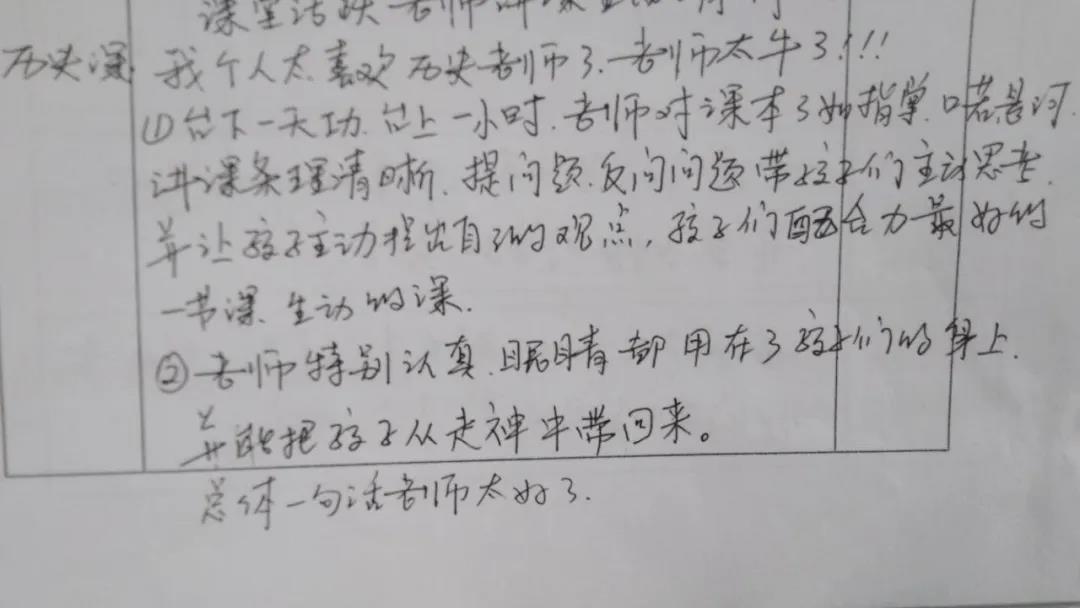 课堂活跃 老师讲课
历史课 我个人太喜欢历史老师了.老师太牛了!!!
①台下一天功.台上一小时.老师对课本了如指掌.口若悬河.
讲课条理清晰.提问题.反问问题带孩子们主动思考.
并让孩子主动提出自己的观点,孩子们配合力最好的
一节课.生动的课.
②老师特别认真.眼睛都用在了孩子们的身上.
并能把孩子从走神中带回来。
总体一句话老师太好了.